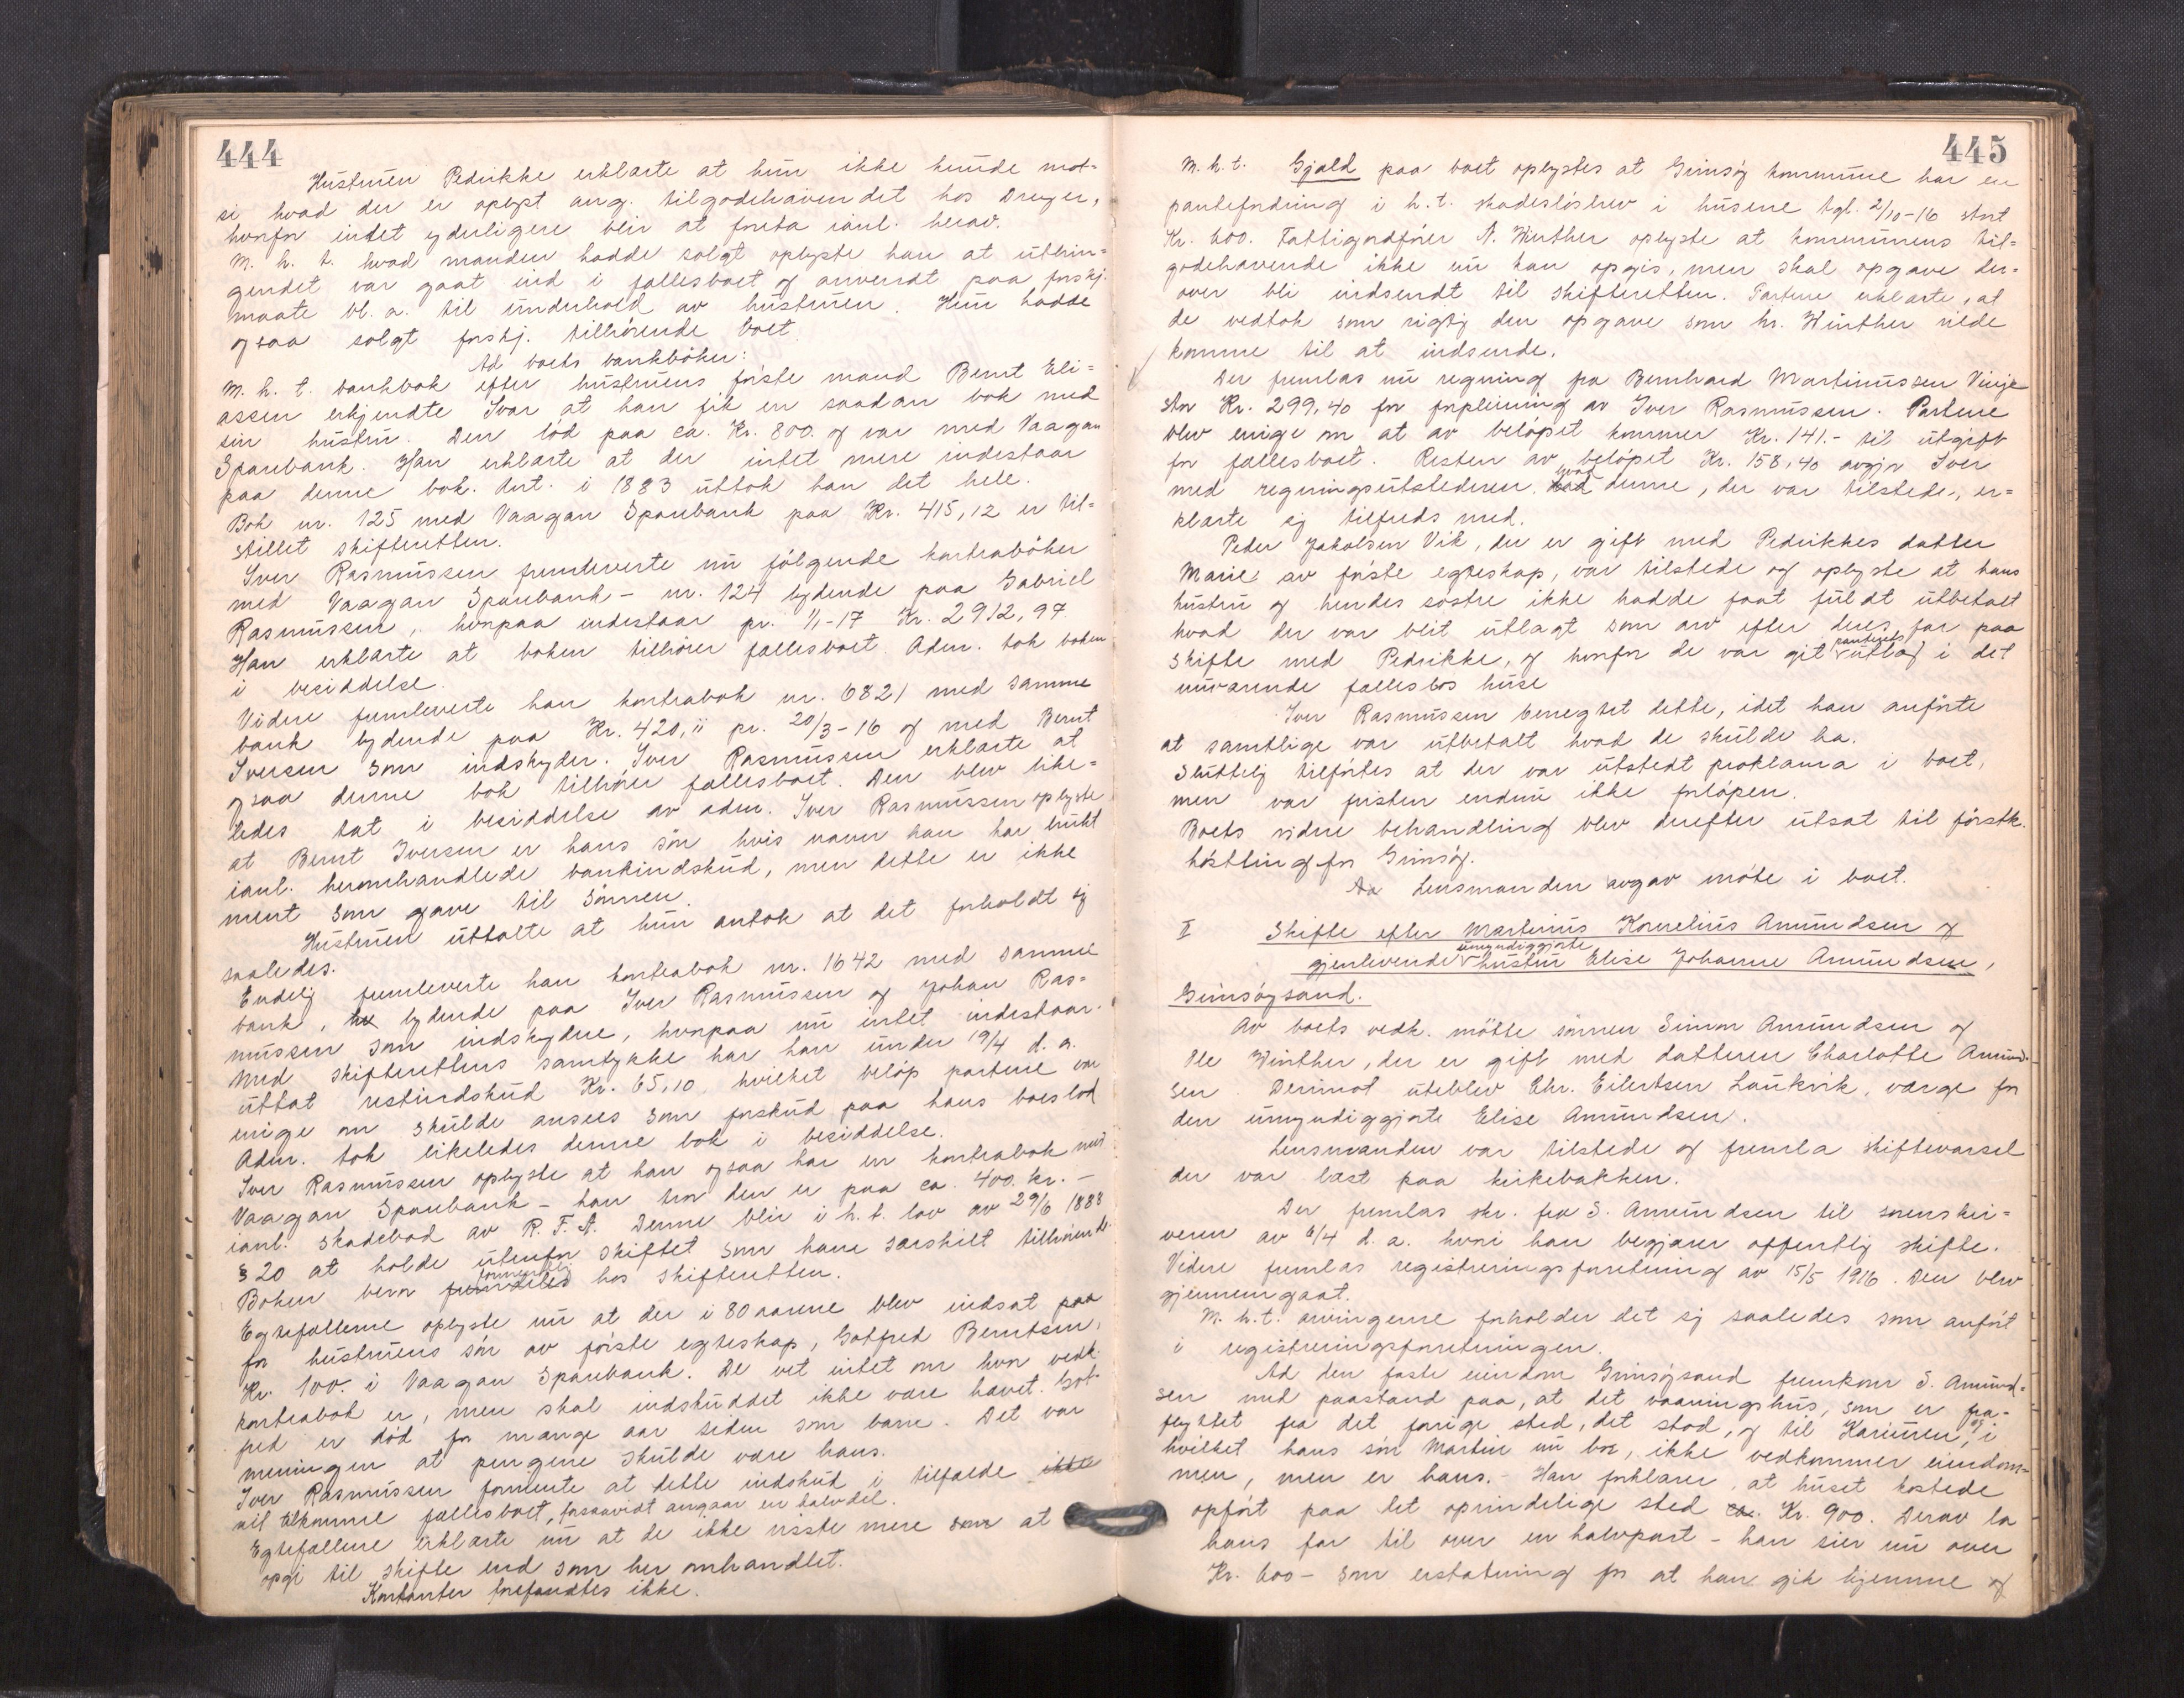 444
Hustruen Pedrikke erklærte at hun ikke kunde mot-
si hvad der er oplyst ang. tilgodehavendet hos Dreyer,
hvorfor intet yderligere blir at foreta ianl. herav.
M. h. t. hvad manden hadde solgt oplyste han at utbrin-
gendet var gaat ind i fællesboet og anvendt paa forskj.
maate bl. a. til underhold av hustruen. Hun hadde
ogsaa solgt forskj. tilhörende boet.
Ad boets bankböker:
M. h. t. bankbok efter hustruens förste mand Bernt Eli-
assen erkjendte Ivar at han fik en saadan bok med
sin hustru. Den löd paa ca. Kr. 800. og var med Vaagan
Sparebank. Han erklærte at der intet mere indestaar
paa denne bok. Ant. i 1883 uttok han det hele.
Bok nr. 125 med Vaagan Sparebank paa Kr. 415,12 er til-
stillet skifteretten.
Iver Rasmussen fremleverte nu fölgende kontraböker
med Vaagan Sparebank - nr. 124 lydende paa Gabriel
Rasmussen, hvorpaa indestaar pr. 1/1-17 Kr. 2912,97.
Han erklærte at boken tilhörer fællesboet. Adm. tok boken
i besiddelse.
Videre fremleverte han kontrabok nr. 6821 med samme
bank lydende paa Kr. 420,11 pr. 20/3-16 og med Bernt
Iversen som indskyder. Iver Rasmussen erklærte at
ogsaa denne bok tilhörer fællesboet. Den blev like-
ledes tat i besiddelse av adm. Iver Rasmussen oplyste
at Bernt Iversen er hans sön hvis navn han har brukt
ianl. heromhandlede bankindskud, men dette er ikke
ment som gave til sönnen.
Hustruen uttalte at hun antok at det forholdt sig
saaledes.
Endelig fremleverte han kontrabok nr. 1642 med samme
bank, lydende paa Iver Rasmussen og Johan Ras-
mussen som indskydere, hvorpaa nu intet indestaar.
Med skifterettens samtykke har han under 19/4 d. a.
uttat restindskud Kr. 65,10 hvilket belöp partene var
enige om skulde ansees som forskud paa hans boeslod
Adm. tok likeledes denne bok i besiddelse.
Iver Rasmussen oplyste at han ogsaa har en kontrabok med
Vaagan Sparebank - han tror den er paa ca. 400. kr. -
ianl. skadebod av R. F. A. Denne blir i h. t. lov av 29/6 1888
§ 20 at holde utenfor skiftet som ham særskilt tilhörende.
Boken bero hos skifteretten.
Egtefællerne oplyste nu at der i 80 aarene blev indsat paa
for hustruens sön av förste egteskap, Gotfred Berntsen,
Kr. 100. i Vaagan Sparebank. De vet intet om hvor vedk.
kontrabok er, men skal indskuddet ikke være hævet. Got-
fred er död for mange aar siden som barn. Det var
meningen at pengene skulde være hans.
Iver Rasmussen formente at dette indskud i tilfælde ikke
vil tilkomme fællesboet, forsaavidt angaar en halvdel.
Egtefællene erklærte nu at de ikke visste mere som at
opgi til skifte end som her omhandlet.
Kontanter forefandtes ikke.
445
M. h. t. Gjæld paa boet oplystes at Gimsöy kommune har en
pantefordring i h. t. skadeslösbrev i husene tgl. 2/10-16 stort
Kr. 600. Fattigordförer A. Winther oplyste at kommunens til-
godehavende ikke nu kan opgis, men skal opgave der-
over bli indsendt til skifteretten. Partene erklærte, at
de vedtok som rigtig den opgave som hr. Winther vilde
komme til at indsende.
Der fremlas nu regning fra Bernhard Martinussen Vinje
stor Kr. 299,40 for forpleining av Iver Rasmussen. Partene
blev enige om at av belöpet kommer Kr. 141.- til utgift
for fællesboet. Resten av belöpet Kr. 158,40 avgjör Iver
med regningsutstederen, hvad denne, der var tilstede, er-
klærte sig tilfreds med.
Peder Jakobsen Vik, der er gift med Pedrikkes datter
Marie av förste egteskap, var tilstede og oplyste at hans
hustru og hendes söstre ikke hadde faat fuldt utbetalt
hvad der var blit utlagt som arv efter deres far paa
skifte med Pedrikke, og hvorfor de var git panterets utlæg i det
nuværende fællesbos huse
Iver Rasmussen benegtet dette, idet han anförte
at samtlige var utbetalt hvad de skulde ha.
Sluttelig tilförtes at der var utstedt proklama i boet,
men var fristen endnu ikke forlöpen.
Boets videre behandling blev derefter utsat til förstk.
höstting for Gimsöy.
Aa Lensmanden avgav möte i boet.
II Skifte efter Martinus Kornelius Amundsen og
gjenlevende umyndiggjorte hustru Elise Johanne Amundsen,
Gimsöysand.
Av boets vedk. mötte sönnen Simon Amundsen og
Ole Winther, der er gift med datteren Charlotte Amund-
sen. Derimot uteblev Chr. Eilertsen Laukvik, værge for
den umyndiggjorte Elise Amundsen.
Lensmanden var tilstede og fremla skiftevarsel
der var læst paa kirkebakken.
Der fremlas skr. fra S. Amundsen til sorenskri-
veren av 6/4 d. a. hvori han begjærer offentlig skifte.
Videre fremlas registreringsforretning av 15/5 1916. Den blev
gjennemgaat.
M. h. t. arvingerne forholder det sig saaledes som anfört
i registreringsforretningen.
Ad den faste eiendom Gimsöysand fremkom S. Amund-
sen med paastand paa, at det vaaningshus, som er fra-
flyttet fra det forrige sted, det stod, og til Karinen, og i
hvilket hans sön Martin nu bor, ikke vedkommer eiendom-
men, men er hans. - Han forklarer, at huset kostede
opfört paa det oprindelige sted ca. Kr. 900. Derav la
hans far til over en halvpart - han sier nu over
Kr. 600 - som erstatning for at han gik hjemme og